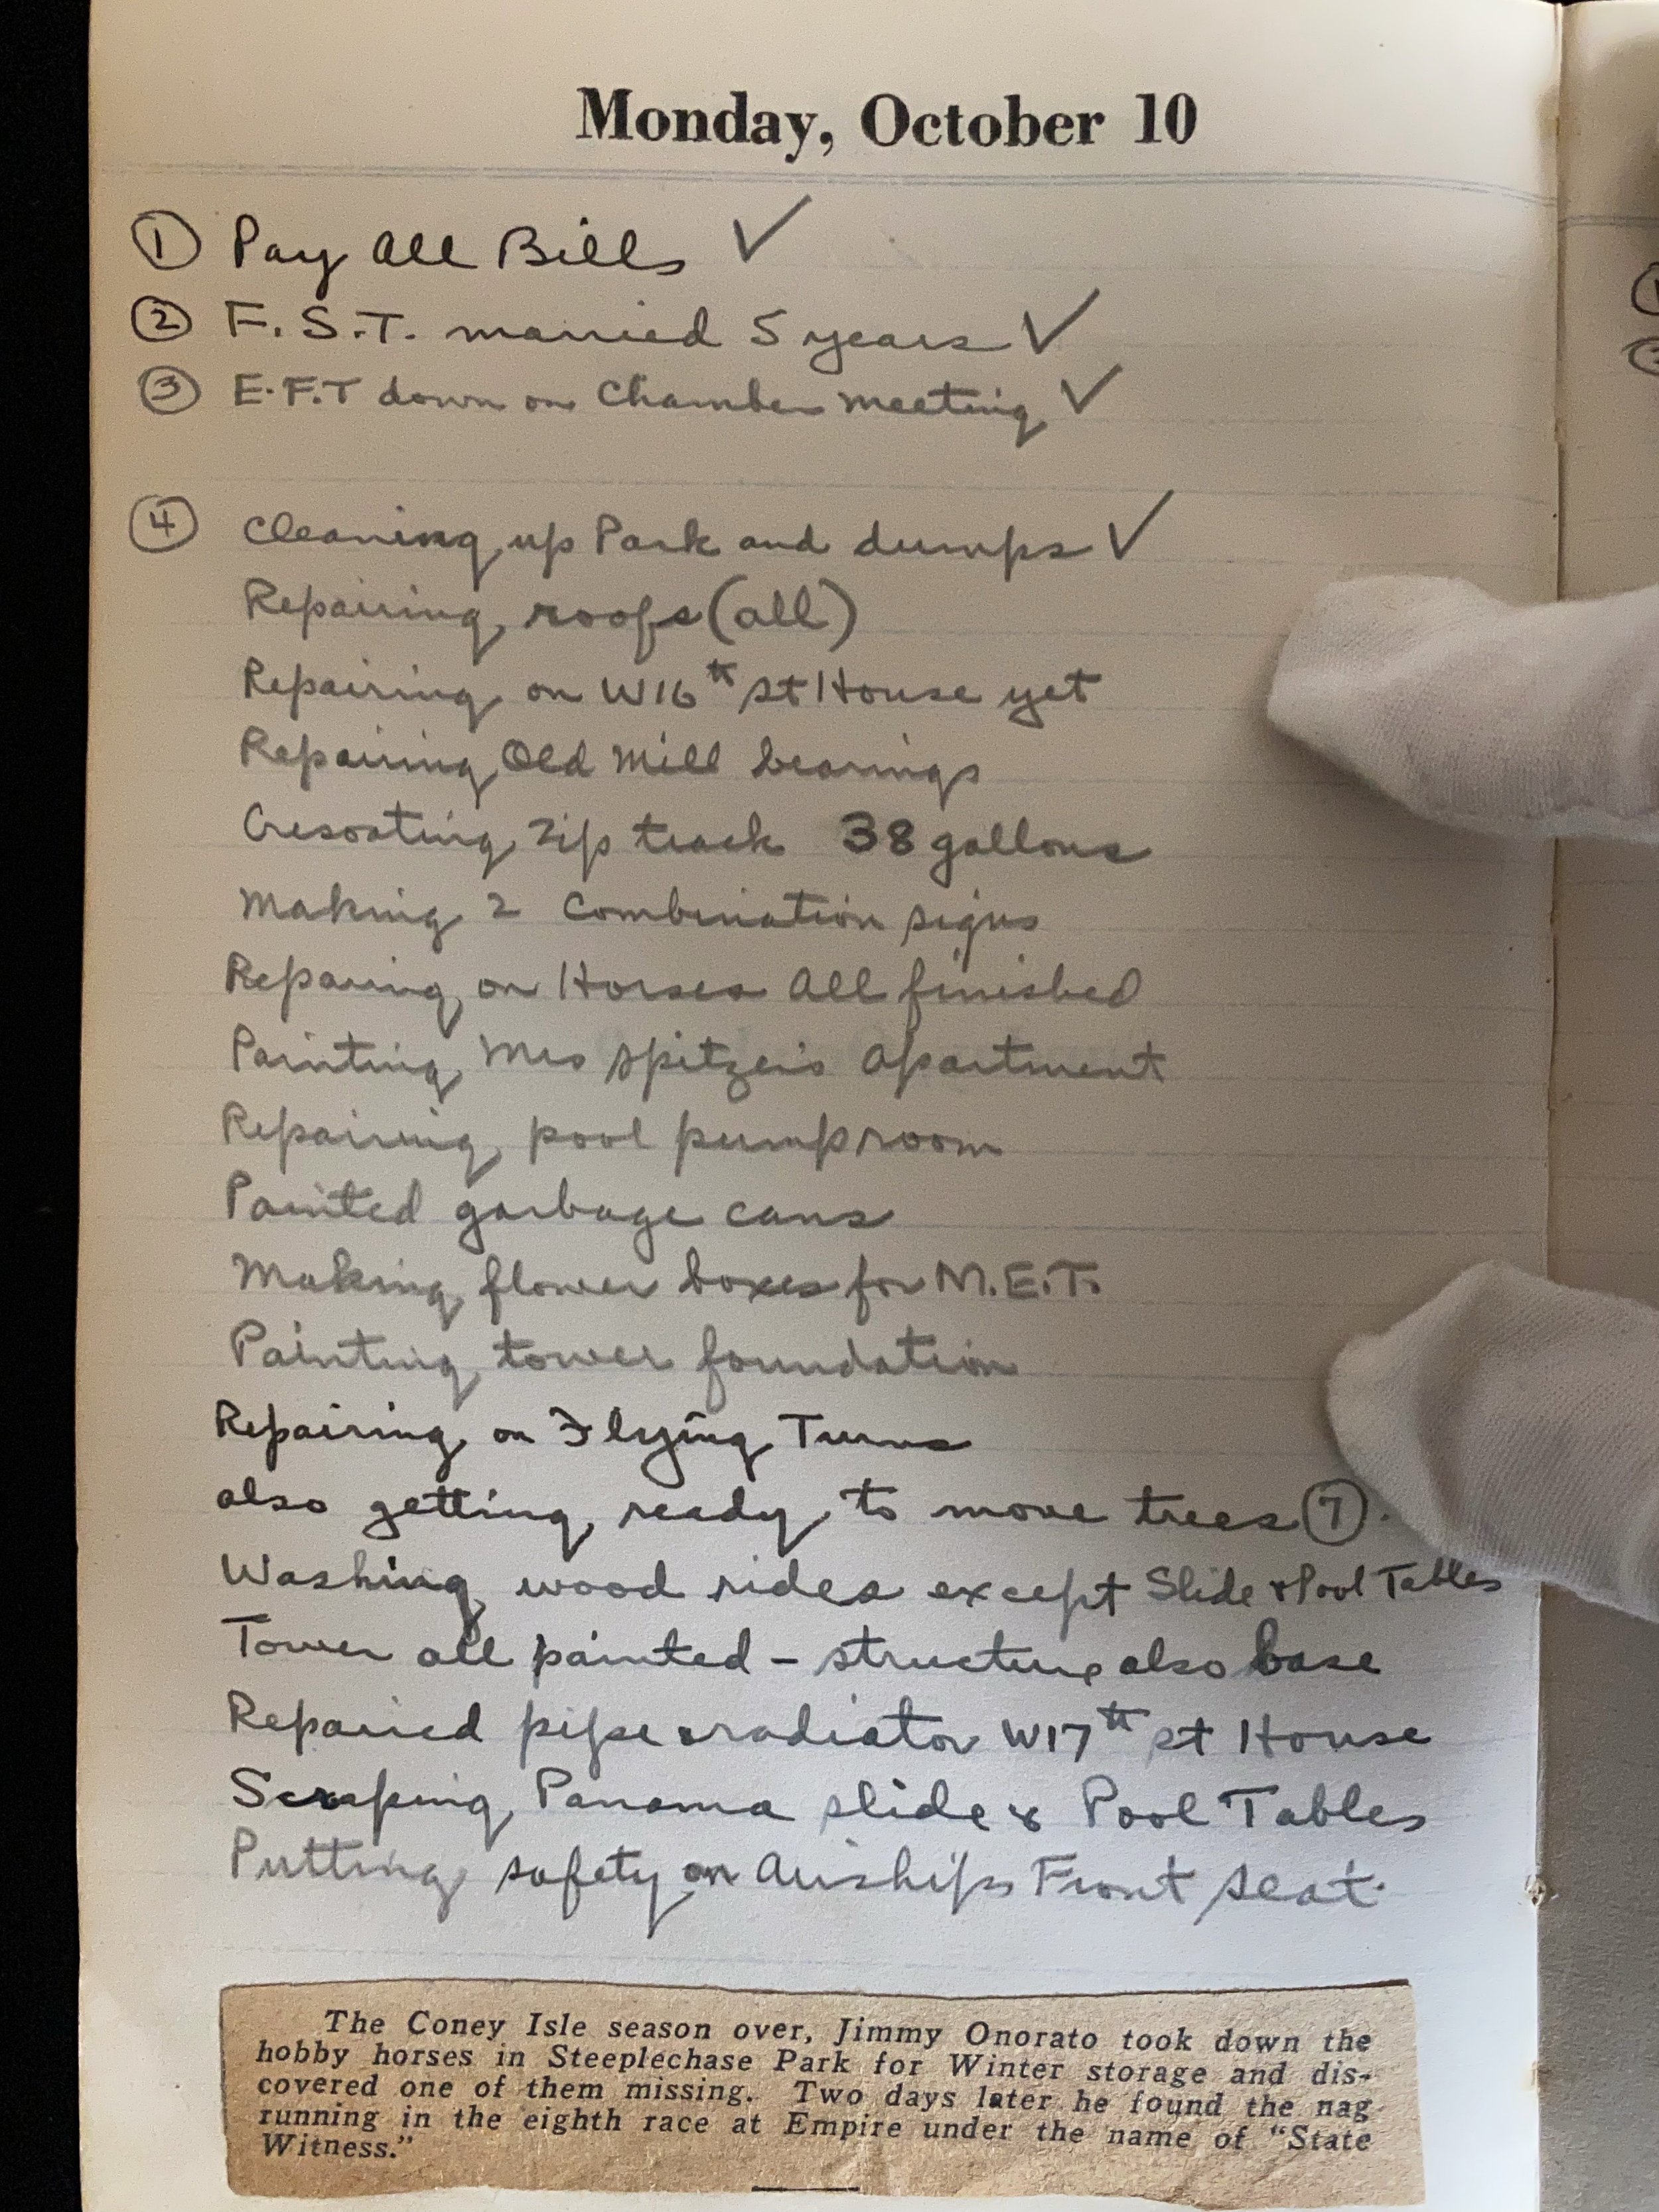 Monday, October 10
① Pay All Bills ✓
② F.S.T. married 5 years ✓
③ E.F.T down on Chamber meeting ✓
④ Cleaning up Park and dumps ✓
Repairing roofs (all)
Repairing on W16th st House yet
Repairing Old Mill bearings
Cresoating Zip track 38 gallons
Making 2 Combination signs
Reparing on Horses All finished
Painting Mrs Spitzer's Apartment
Repairing pool pumproom
Painted garbage cans
Making flower boxes for M.E.T.
Painting tower foundation
Repairing on Flying Turns
also getting ready to move trees ⑦.
Washing wood rides except Slide & Pool Tables
Tower all painted - structure also base
Repaired pipe & radiator W17th st House
Scraping Panama slide & Pool Tables
Putting safety on Airships Front seat.
The Coney Isle season over, Jimmy Onorato took down the
hobby horses in Steeplechase Park for Winter storage and dis-
covered one of them missing. Two days later he found the nag
running in the eighth race at Empire under the name of "State
Witness."